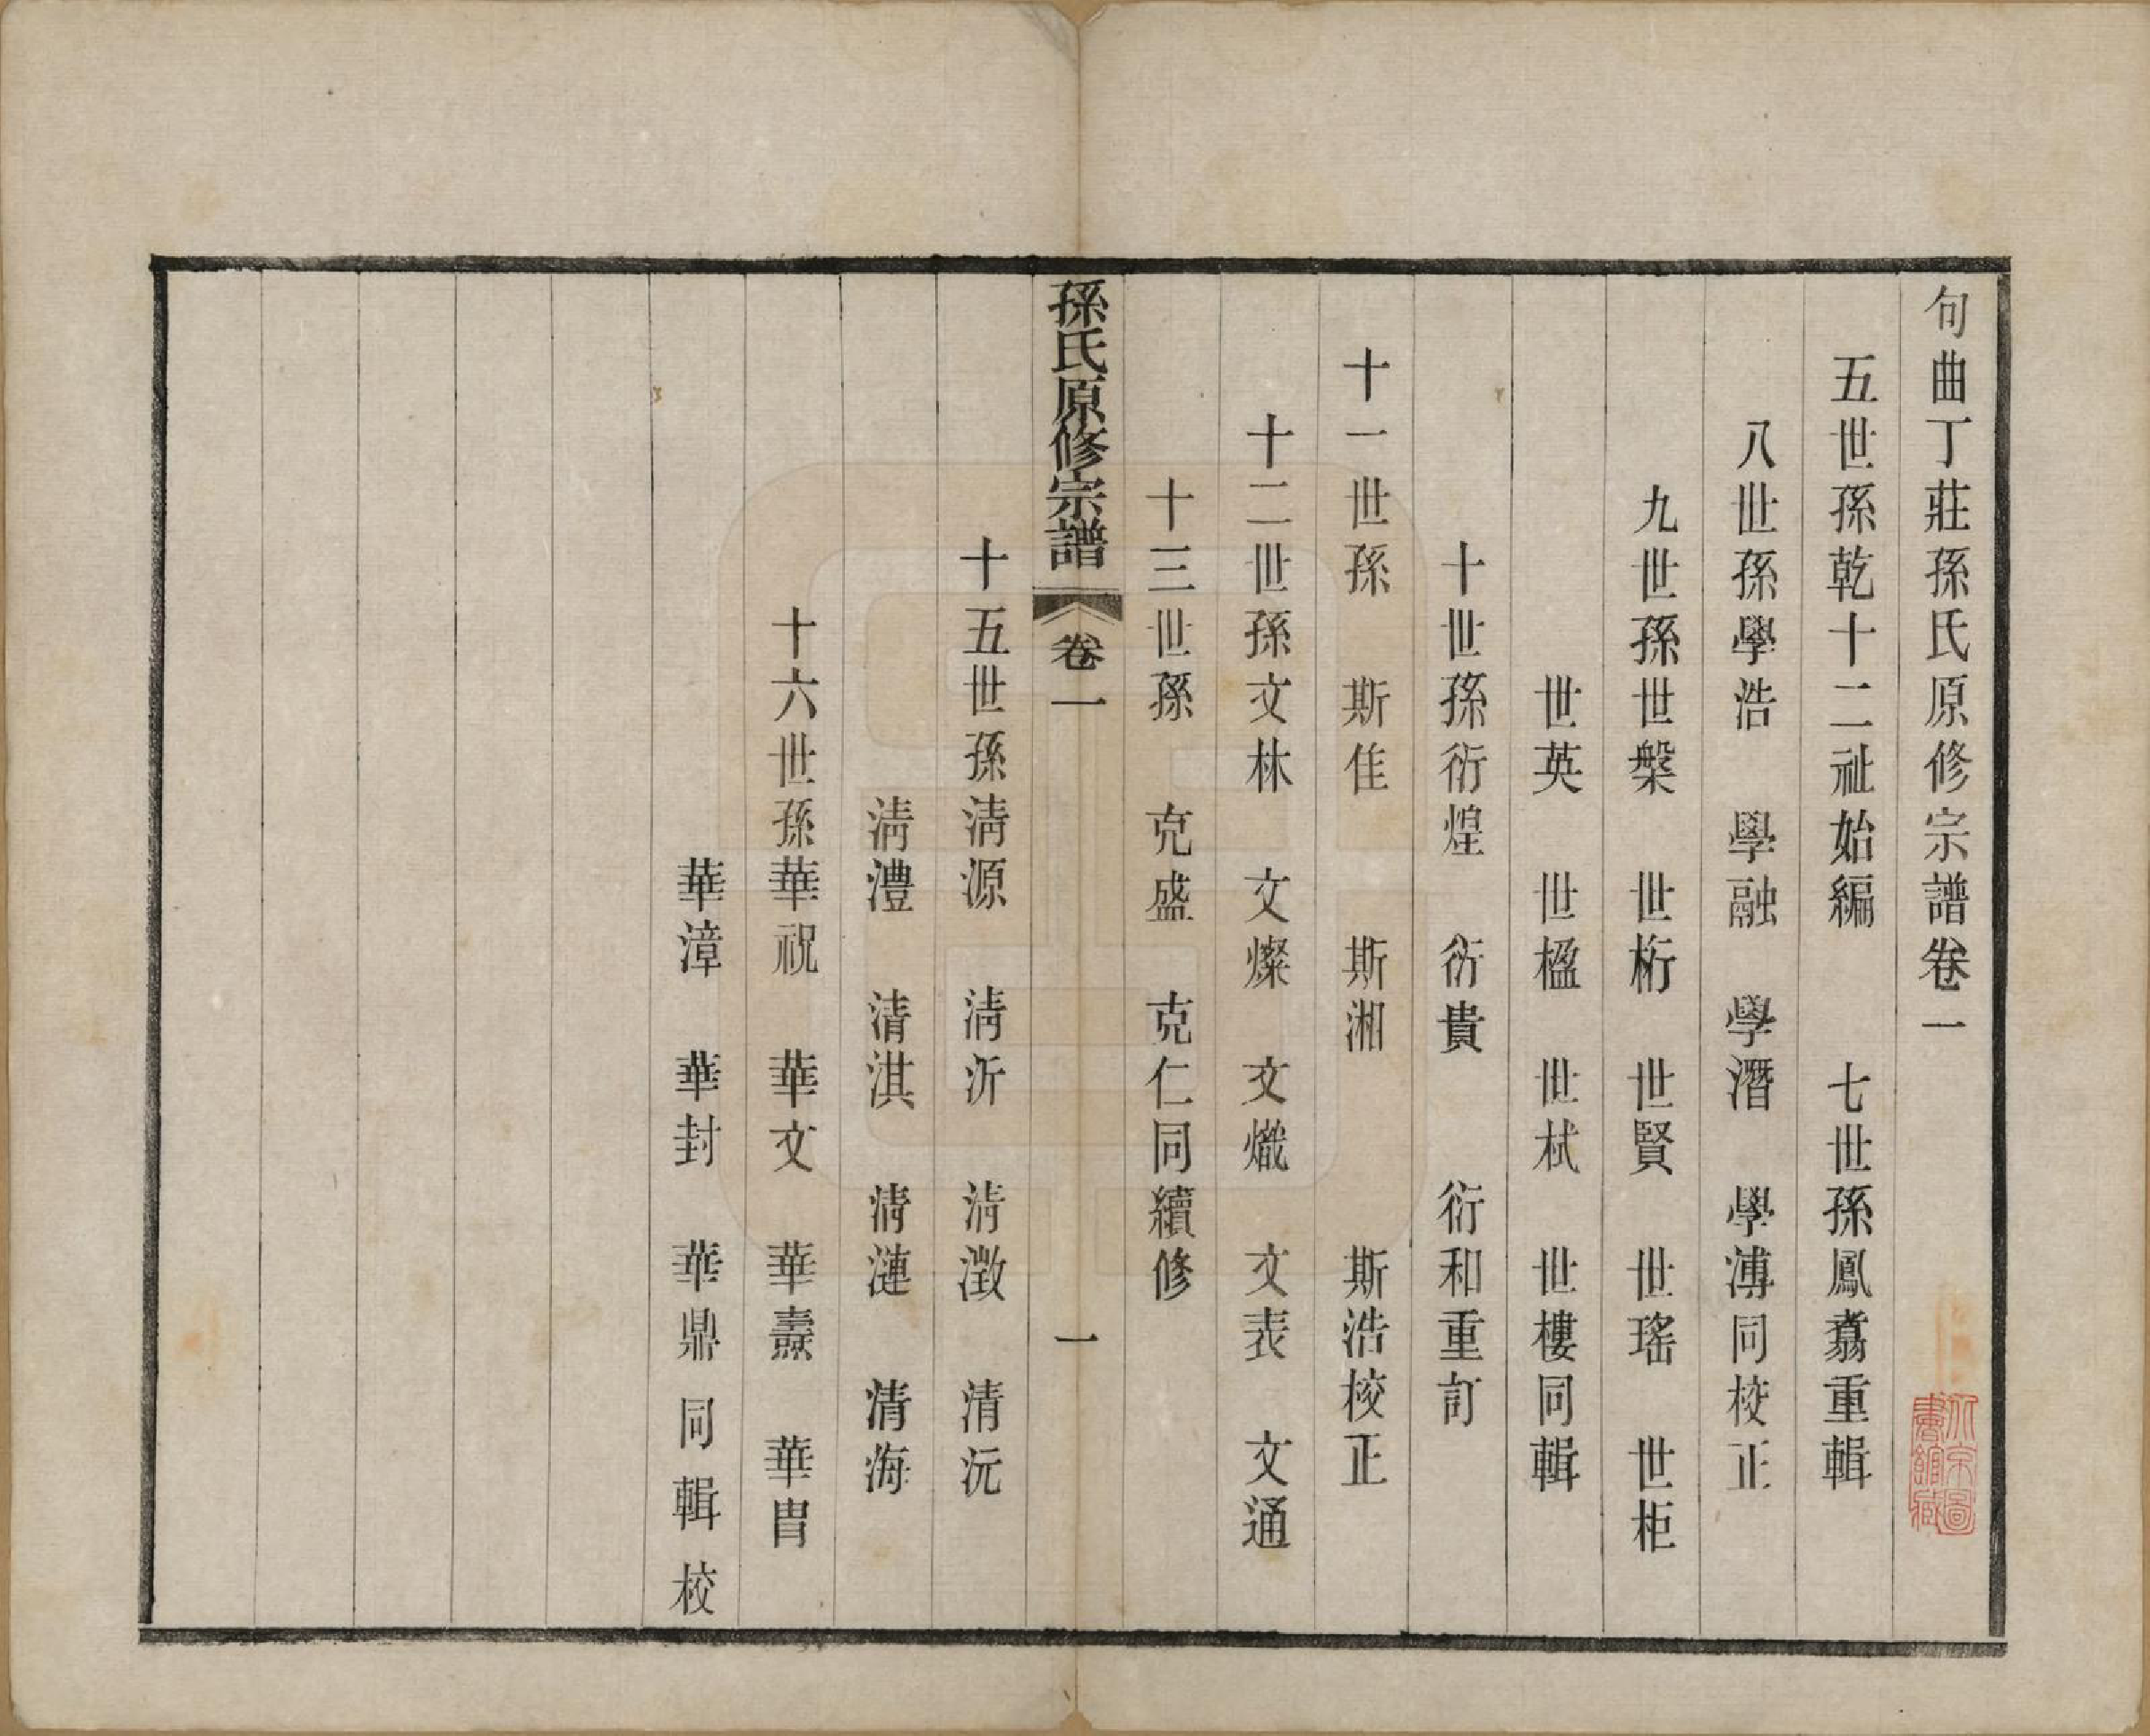 句曲丁莊孫氏原修宗譜卷一
五世孫乾十二祉始編　七世孫鳳翥重輯
八世孫學浩　學融　學潛　學溥同校正
九世孫世槃　世桁　世賢　世瑤　世柜
世英　世楹　世栻　世樓同輯
十世孫衍煌　衍貴　衍和重訂
十一世孫　斯佳　斯湘　斯浩校正
十二世孫文林　文燦　文熾　文表　文通
十三世孫　克盛　克仁同續修
孫氏原修宗譜　卷一　一
十五世孫清源　清沂　清澂　清沅
清澧　清淇　清漣　清海
十六世孫華祝　華文　華燾　華胄
華漳　華封　華鼎同輯校
北京圖書館藏